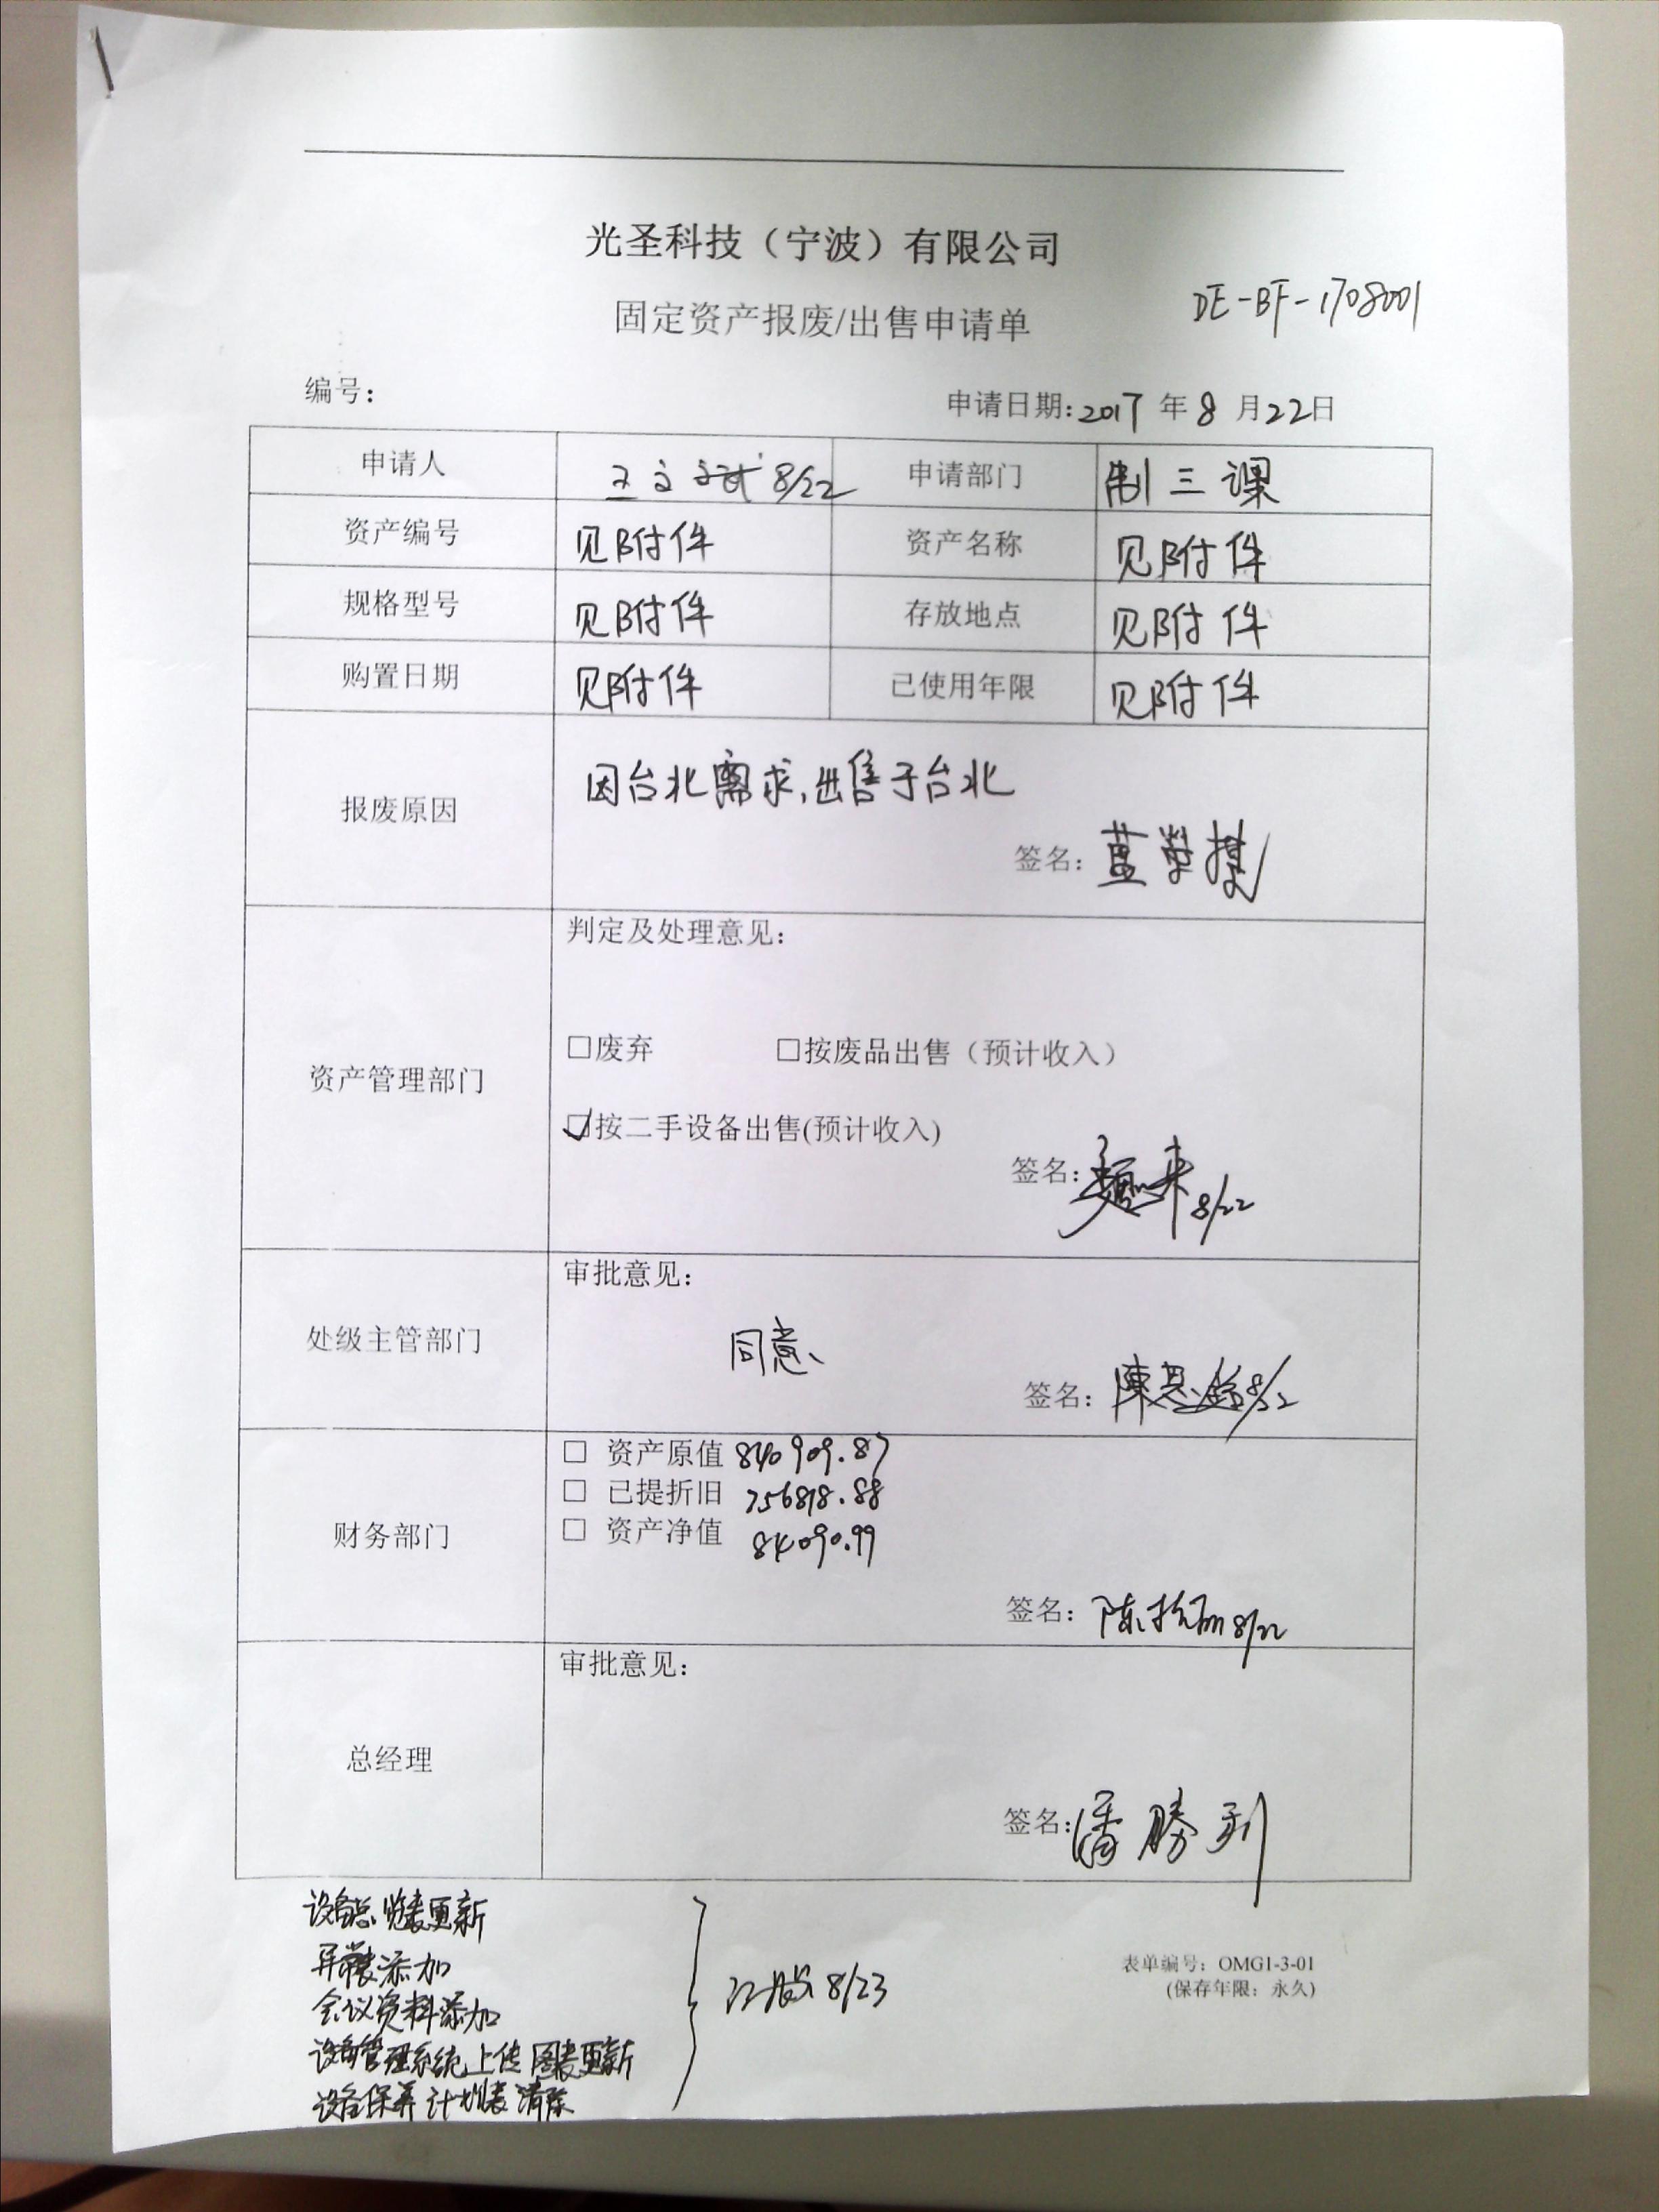 光圣科技（宁波）有限公司
固定资产报废/出售申请单
DE-BF-1708001
编号：
申请日期:2017 年 8 月 22日
申请人 王文 8/22 申请部门 制三课
资产编号 见附件 资产名称 见附件
规格型号 见附件 存放地点 见附件
购置日期 见附件 已使用年限 见附件
报废原因
因台北需求,出售于台北
签名：
资产管理部门
判定及处理意见：
□废弃 □按废品出售（预计收入）
☑按二手设备出售(预计收入)
签名： 8/22
处级主管部门
审批意见：
同意、
签名： 陳 8/22
财务部门
□ 资产原值 840909.87
□ 已提折旧 756818.88
□ 资产净值 84090.99
签名： 陈 8/22
总经理
审批意见：
签名： 潘勝利
设备总览表更新
异常表添加
会议资料添加
设备管理系统上传图表更新
设备保养计划表清除
8/23
表单编号：OMG1-3-01
(保存年限：永久)